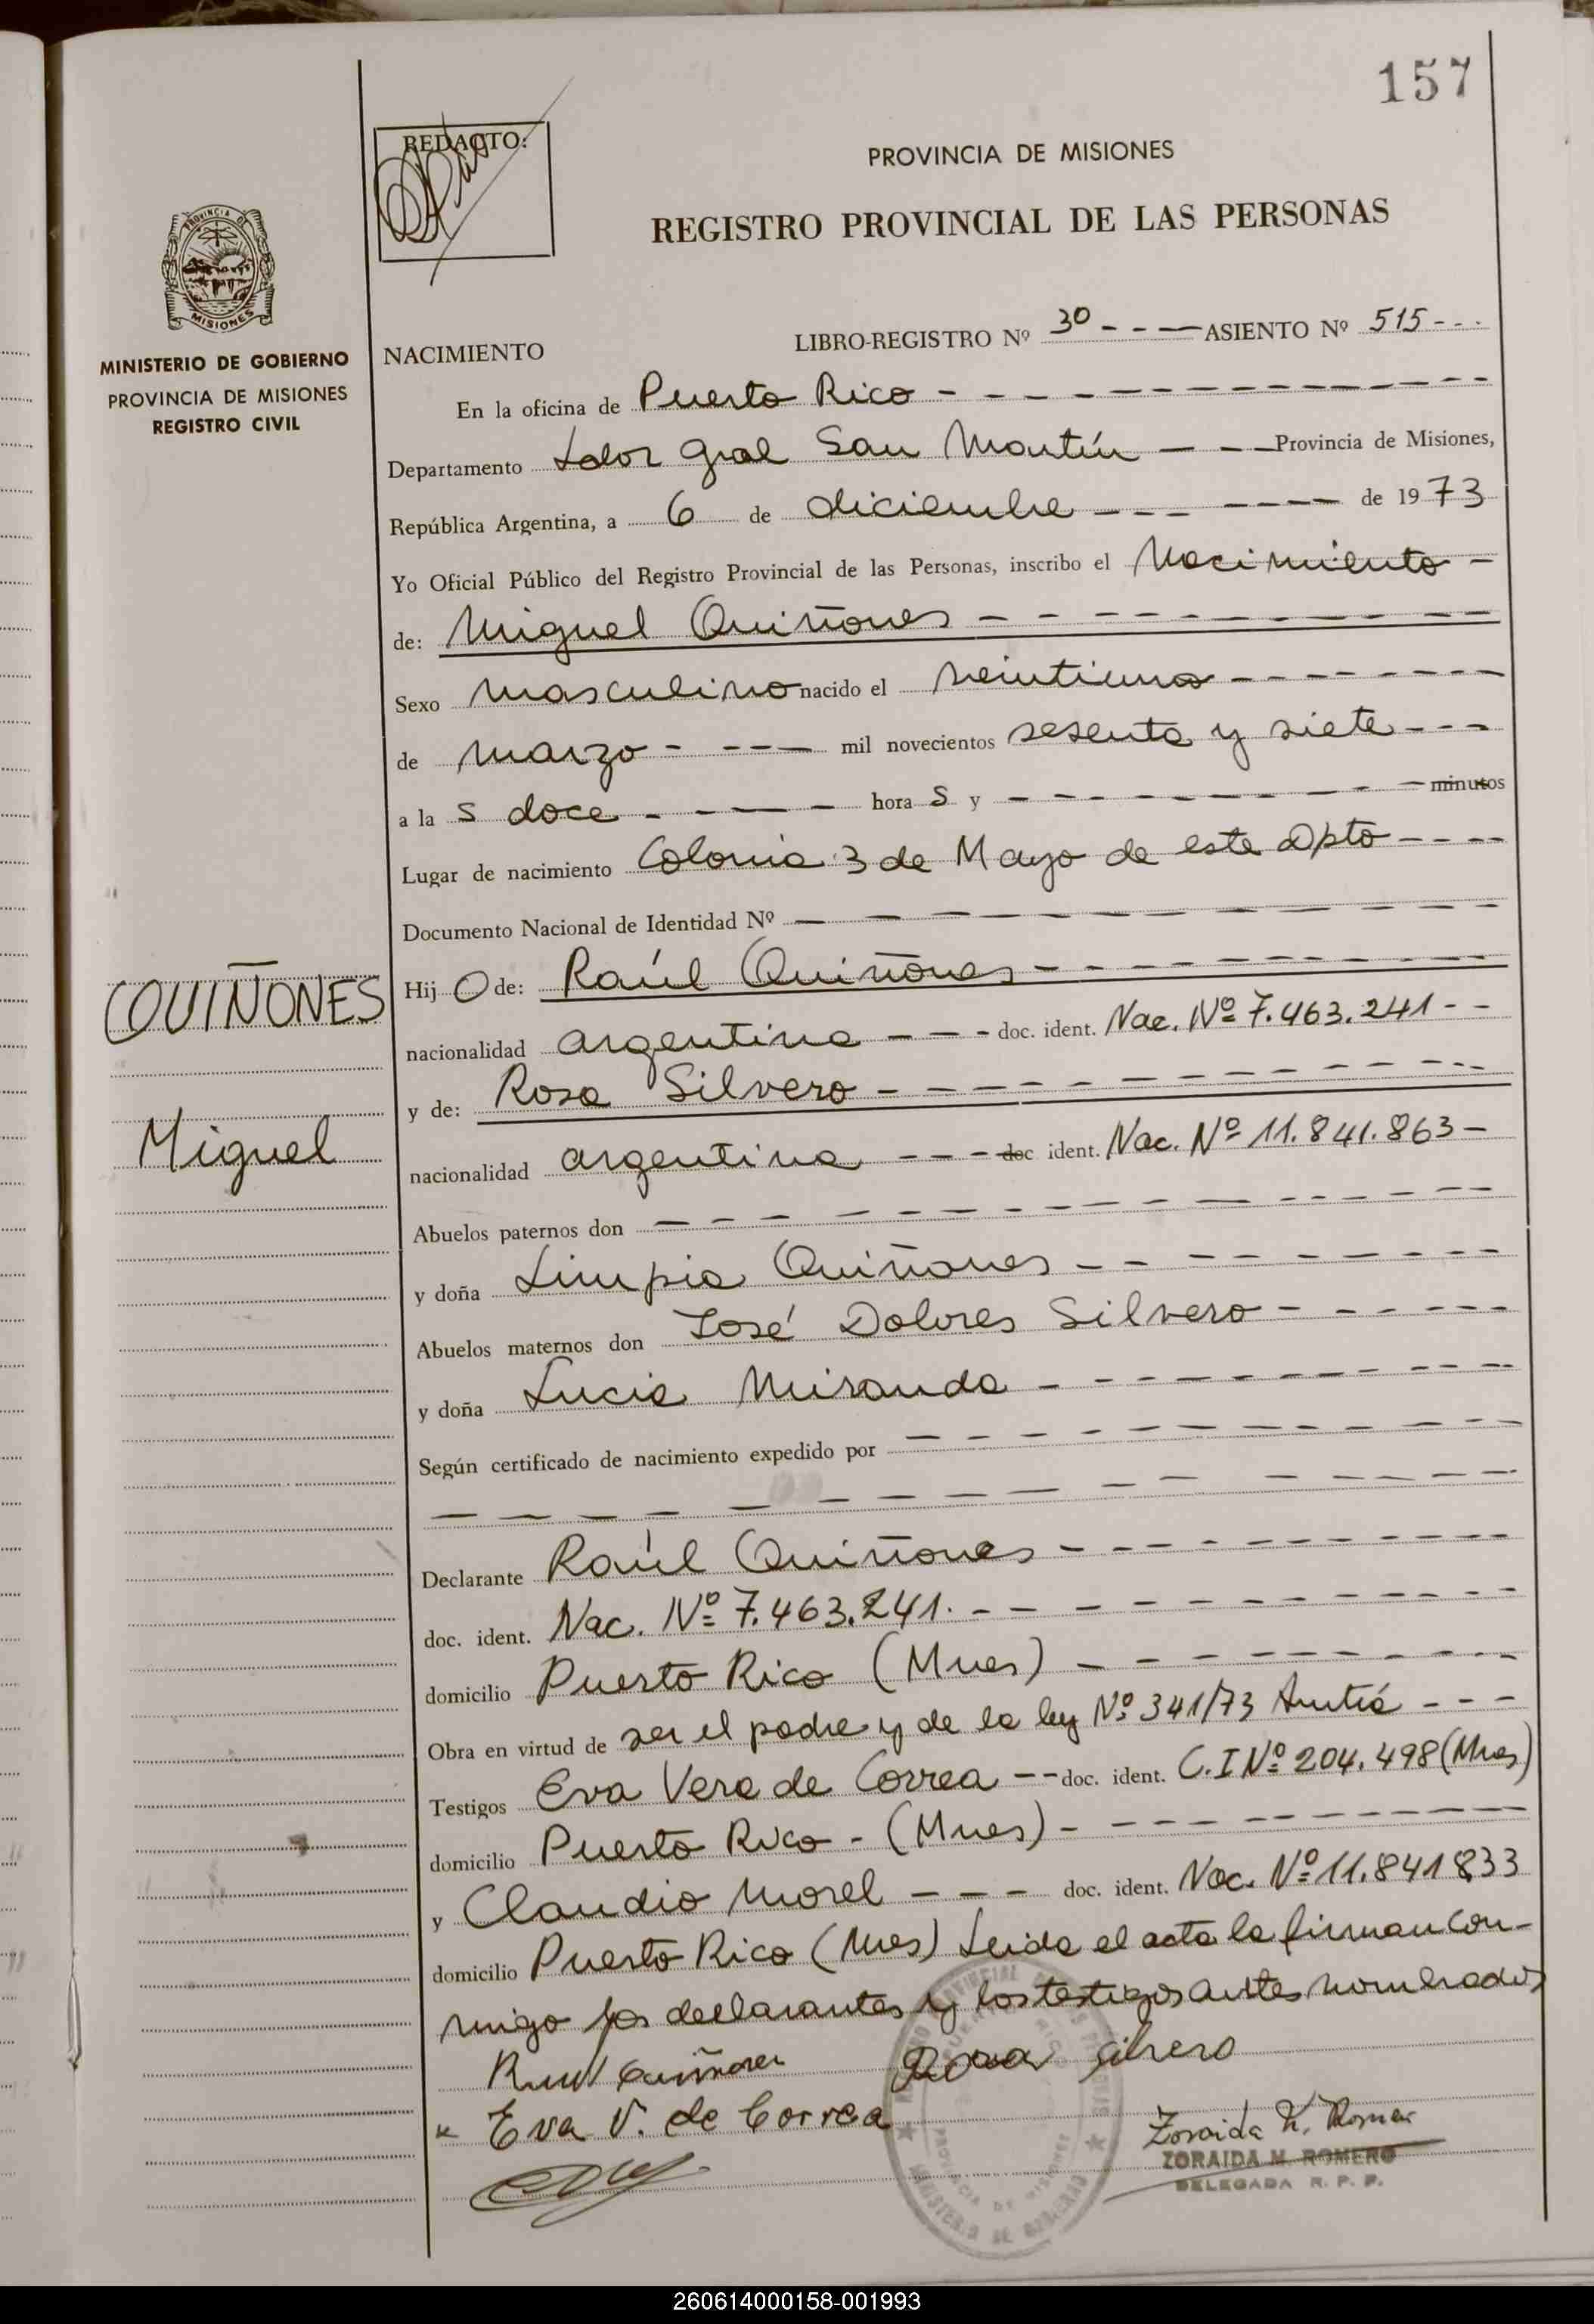 157
REDACTO:
PROVINCIA DE MISIONES
REGISTRO PROVINCIAL DE LAS PERSONAS
PROVINCIA DE
MISIONES
MINISTERIO DE GOBIERNO
PROVINCIA DE MISIONES
REGISTRO CIVIL
NACIMIENTO
LIBRO-REGISTRO Nº 30 - - - ASIENTO Nº 515 - - -
En la oficina de Puerto Rico - - - - - - - - - - - -
Departamento Ldor Gral San Martín - - - Provincia de Misiones,
República Argentina, a 6 de diciembre - - - - - - - de 1973
Yo Oficial Público del Registro Provincial de las Personas, inscribo el Nacimiento -
de: Miguel Quiñones - - - - - - - - - -
Sexo masculino nacido el veintiuno - - - - - - - -
de marzo - - - - - mil novecientos sesenta y siete - - -
a la s doce - - - - - hora s y - - - - - - - - - - minutos
Lugar de nacimiento Colonia 3 de Mayo de este Dpto - - - -
Documento Nacional de Identidad Nº - - - - - - - - - - -
QUIÑONES
Miguel
Hij o de: Raúl Quiñones - - - - - - - - - -
nacionalidad argentina - - - - doc. ident. Nac. Nº 7.463.241 - -
y de: Rosa Silvero - - - - - - - - - - - -
nacionalidad argentina - - - - doc ident. Nac. Nº 11.841.863 -
Abuelos paternos don - - - - - - - - - - - - - -
y doña Limpia Quiñones - - - - - - - - -
Abuelos maternos don José Dolores Silvero - - - - - -
y doña Lucia Miranda - - - - - - - - - - -
Según certificado de nacimiento expedido por - - - - - - - - - - -
- - - - - - - - - - - - - - - -
Declarante Raúl Quiñones - - - - - - - - - - -
doc. ident. Nac. Nº 7.463.241. - - - - - - - - - - -
domicilio Puerto Rico (Mnes) - - - - - - - - -
Obra en virtud de ser el padre y de la ley Nº 341/73 - - -
Testigos Eva Vera de Correa - - doc. ident. C.I Nº 204.498 (Mnes)
domicilio Puerto Rico - (Mnes) - - - - - - - - - -
y Claudio Morel - - - doc. ident. Nac. Nº 11.841833
domicilio Puerto Rico (Mnes) Leida el acta la firman con-
migo los declarantes y los testigos antes nombrados
Raul Quiñones Rosa Silvero
Eva V. de Correa
Zoraida M. Romero
ZORAIDA M. ROMERO
DELEGADA R. P. P.
260614000158-001993